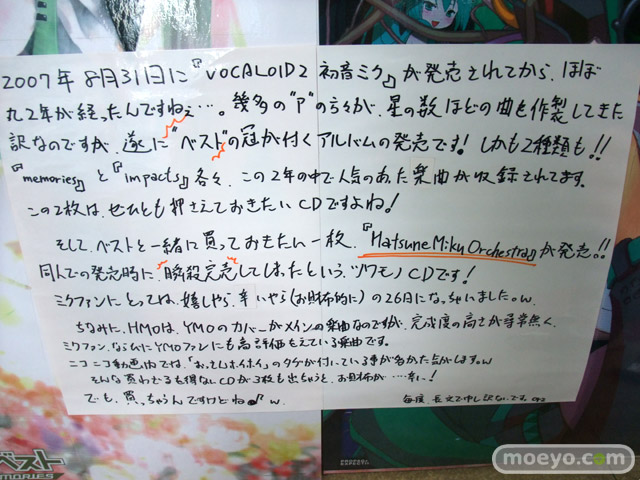 2007年8月31日に『VOCALOID2 初音ミク』が発売されてから、ほぼ
丸2年が経ったんですねぇ…。幾多の"P"の方々が、星の数ほどの曲を作製してきた
訳なのですが、遂に"ベスト"の冠が付くアルバムの発売です!しかも2種類も!!
『memories』と『impacts』各々、この2年の中で人気のあった楽曲が収録されてます。
この2枚は、ぜひとも押さえておきたいCDですよね!
そして、ベストと一緒に買っておきたい一枚、『Hatsune Miku Orchestra』が発売!!
同人での発売時に、瞬殺完売してしまったという、ツワモノCDです!
ミクファンにとっては、嬉しいやら、辛いやら(お財布的に)の26日になっちゃいました。w
ちなみに、HMOは、YMOのカバーがメインの楽曲なのですが、完成度の高さが尋常無く、
ミクファン、ならびにYMOファンにも高評価をえている楽曲です。
ニコニコ動画内では、「おっさんホイホイ」のタグが付いている事が多かった気がします。w
そんな買わざるを得ないCDが3枚も出ちゃうと、お財布が……辛い!
でも、買っちゃうんですけどね♪w
毎度、長文で申し訳ないです。orz
ベスト
MEMORIES
moeyo.com